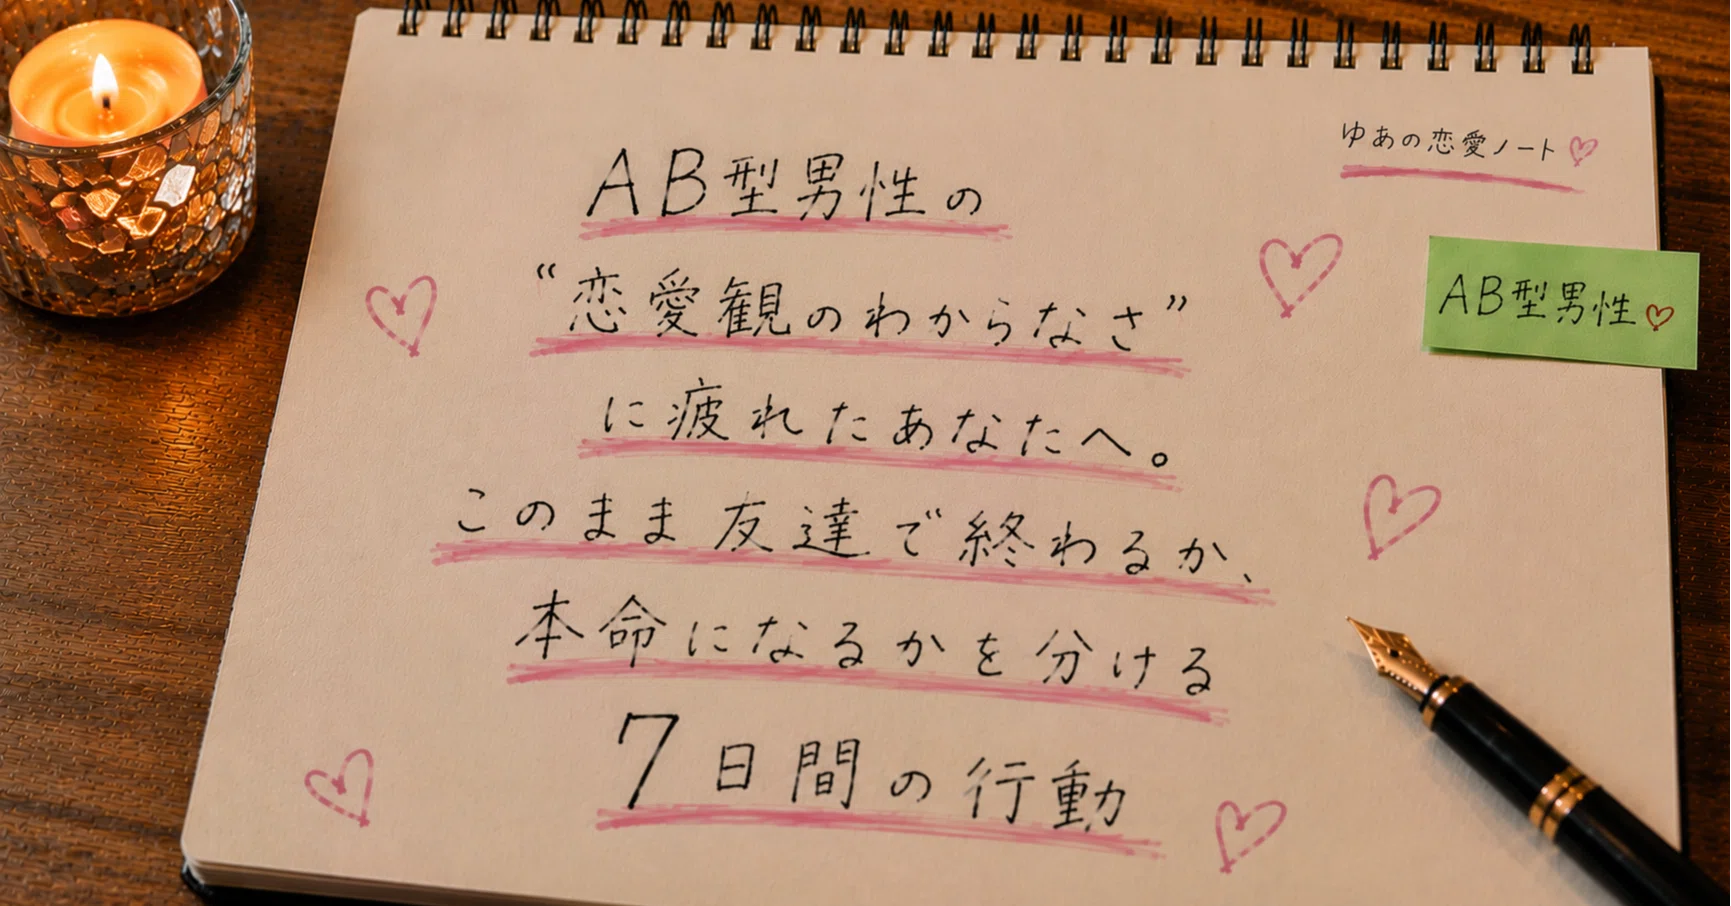 ゆあの恋愛ノート♡
AB型男性の
“恋愛観のわからなさ”
に疲れたあなたへ。
このまま友達で終わるか、
本命になるかを分ける
7日間の行動
AB型男性♡